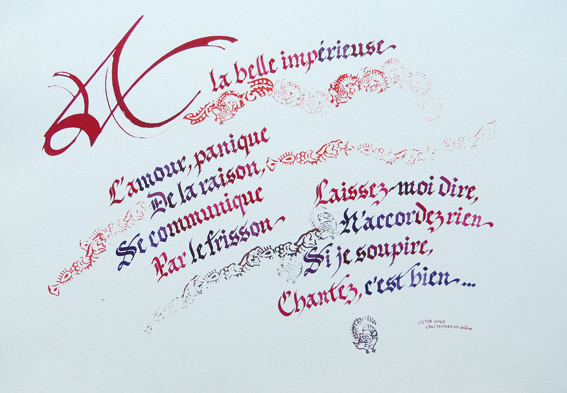 A la belle impérieuse
L'amour, panique
De la raison,
Se communique
Par le frisson
Laissez-moi dire,
N'accordez rien
Si je soupire,
Chantez, c'est bien...
VICTOR HUGO